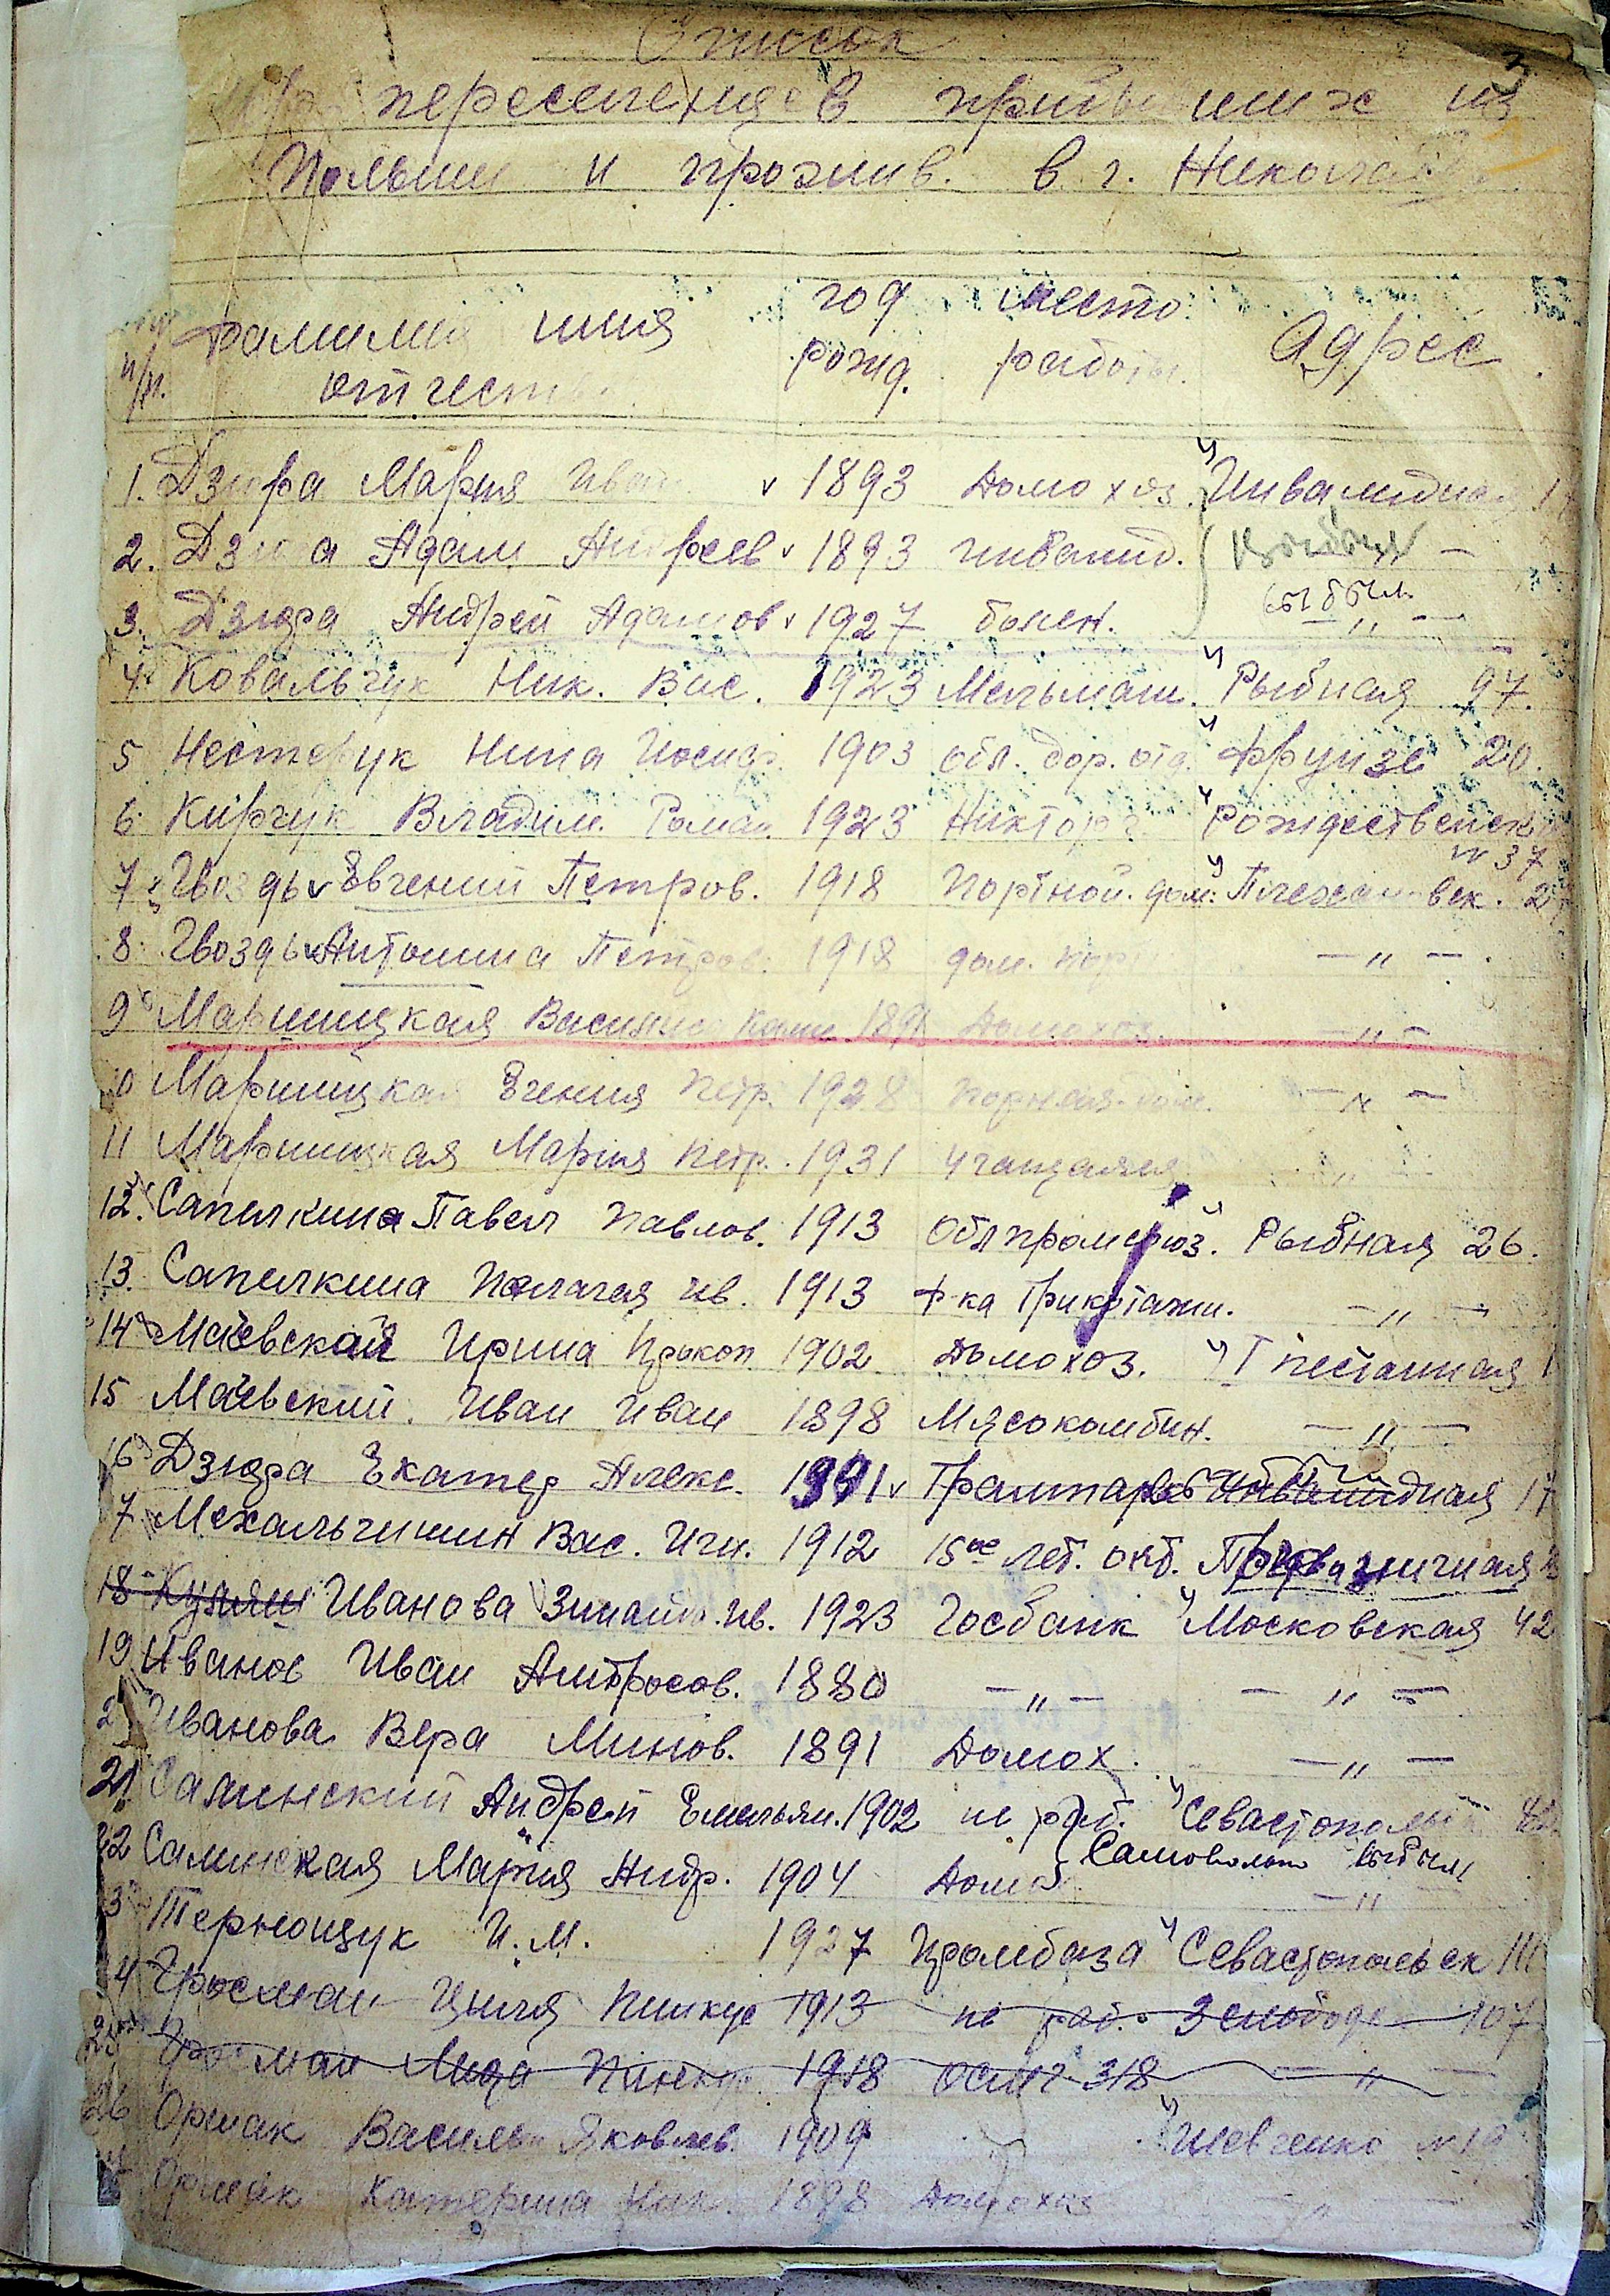 Список
3
переселенцев прибывших из
Польши и прожив. в г. Николаев
п/п.
фамилия имя отчество
год рожд.
место работы.
Адрес
1. Дзюра Мария Иван 1893 Домохоз. Инвалидная
2. Дзюра Адам Андреев 1893 инвалид. — выбыл
3. Дзюра Андрей Адамов 1927 болен. — " —
4. Ковальчук Ник. Вас. 1923 Мельмаш. Рыбная 97.
5 Нестерук Нина Иосиф. 1903 обл. дор. отд. Фрунзе 20.
6. Кирчук Владим. Роман. 1923 Никторг Рождественск
№ 37
7 Гвоздь Евгений Петров. 1918 Портной. дом. Плехановск. 2
8. Гвоздь Антонина Петров. 1918 дом. — " — .
9 Мариницкая Василиса 189 Домохоз. — " —
10 Мариницкая Эгения Петр. 1928 — " —
11 Мариницкая Мария Петр. 1931 учащаяся "
12. Сапилкина Павел Павлов. 1913 Облпромсоюз. Рыбная 26.
13. Сапилкина Пелагея Ив. 1913 Ф-ка Трикотажн. — " —
14 Маевская Ирина Прокоп 1902 Домохоз. I песчанная 1
15 Маевский. Иван Иван 1898 Мясокомбин. — " —
16 Дзюра Екатер Алекс. 1991 Инвалидная 17
7 Мехальчишин Вас. Игн. 1912 15ое лет. окт. Привозничная
18 Иванова Зинаид. Ив. 1923 Госбанк Московская 42
19 Иванов Иван Амбросов. 1880 — " — — " —
2 Иванова Вера Минов. 1891 Домох. — " —
21 Салинский Андрей Емельян. 1902 не раб. Севастопольск
Самовольно выбыли
22 Салинская Мария Андр. 1904 Домох — " —
3 Тернощук И. М. 1927 Промбаза Севастопольск 111
4 Гросман Циля Пинкус 1913 не раб. 107
25 Гросман Лиза Пинкус 1918 ОСМЧ 318 — " —
26 Орлак Василь Яковлев. 1909 Шевченко № 19
Орлак Катерина Ник. 1898 Домохоз "